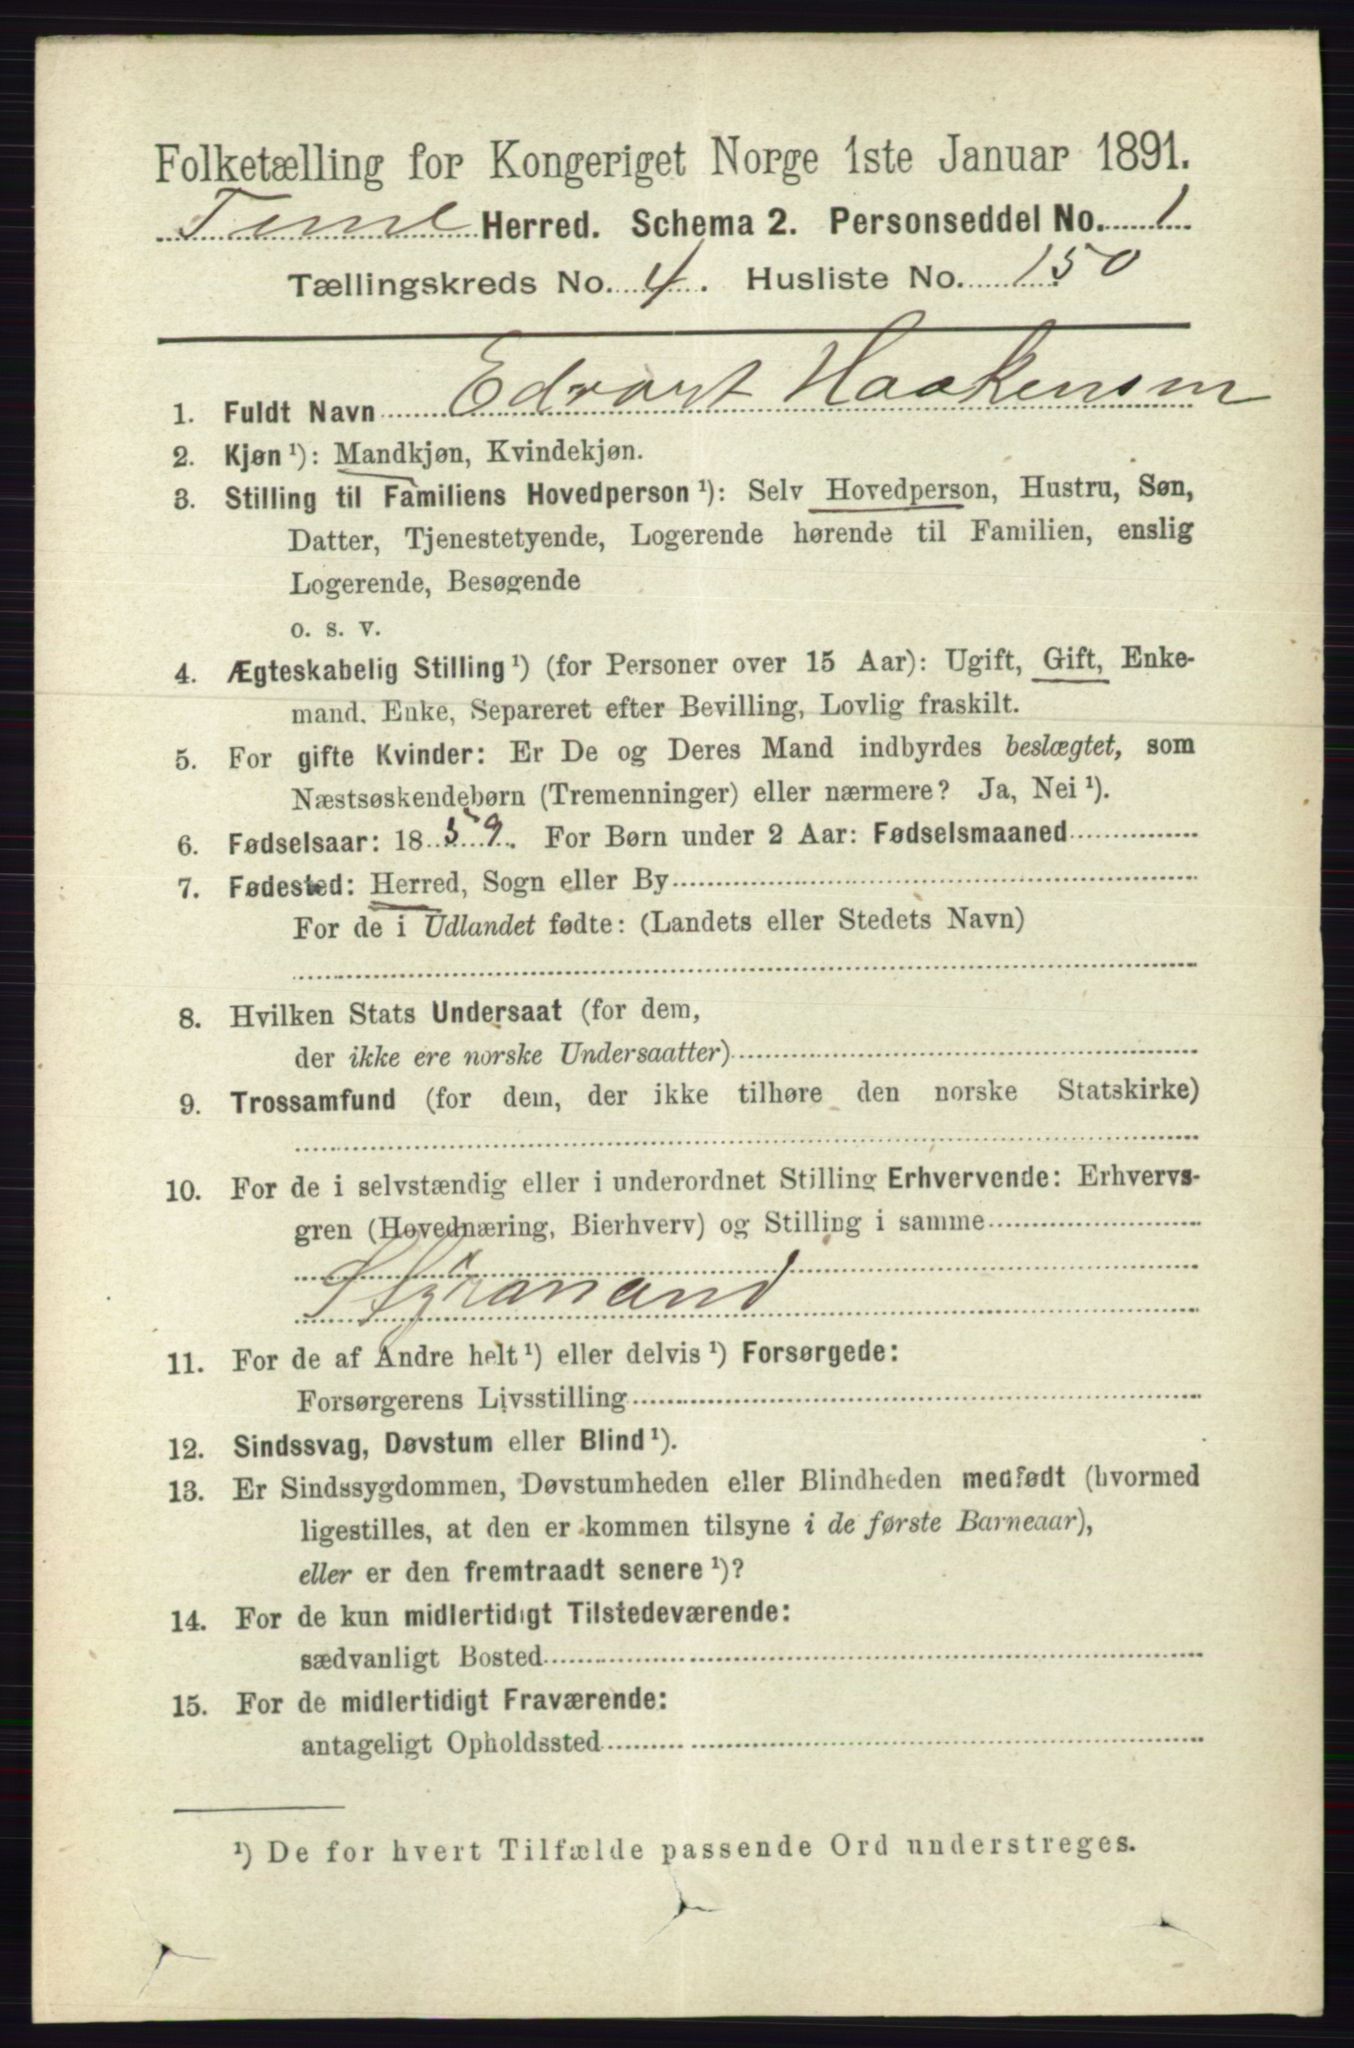 Folketælling for Kongeriget Norge 1ste Januar 1891.
Herred. Schema 2. Personseddel No. 1
Tællingskreds No. 4. Husliste No. 150
1. Fuldt Navn Edvart Haakensen
2. Kjøn ¹): Mandkjøn, Kvindekjøn.
3. Stilling til Familiens Hovedperson ¹): Selv Hovedperson, Hustru, Søn,
Datter, Tjenestetyende, Logerende hørende til Familien, enslig
Logerende, Besøgende
o. s. v.
4. Ægteskabelig Stilling ¹) (for Personer over 15 Aar): Ugift, Gift, Enke-
mand, Enke, Separeret efter Bevilling, Lovlig fraskilt.
5. For gifte Kvinder: Er De og Deres Mand indbyrdes beslægtet, som
Næstsøskendebørn (Tremenninger) eller nærmere? Ja, Nei ¹).
6. Fødselsaar: 1859. For Børn under 2 Aar: Fødselsmaaned
7. Fødested: Herred, Sogn eller By
For de i Udlandet fødte: (Landets eller Stedets Navn)
8. Hvilken Stats Undersaat (for dem,
der ikke ere norske Undersaatter)
9. Trossamfund (for dem, der ikke tilhøre den norske Statskirke)
10. For de i selvstændig eller i underordnet Stilling Erhvervende: Erhvervs-
gren (Hovednæring, Bierhverv) og Stilling i samme
Styrmand
11. For de af Andre helt ¹) eller delvis ¹) Forsørgede:
Forsørgerens Livsstilling
12. Sindssvag, Døvstum eller Blind ¹).
13. Er Sindssygdommen, Døvstumheden eller Blindheden medfødt (hvormed
ligestilles, at den er kommen tilsyne i de første Barneaar),
eller er den fremtraadt senere ¹)?
14. For de kun midlertidigt Tilstedeværende:
sædvanligt Bosted
15. For de midlertidigt Fraværende:
antageligt Opholdssted
¹) De for hvert Tilfælde passende Ord understreges.